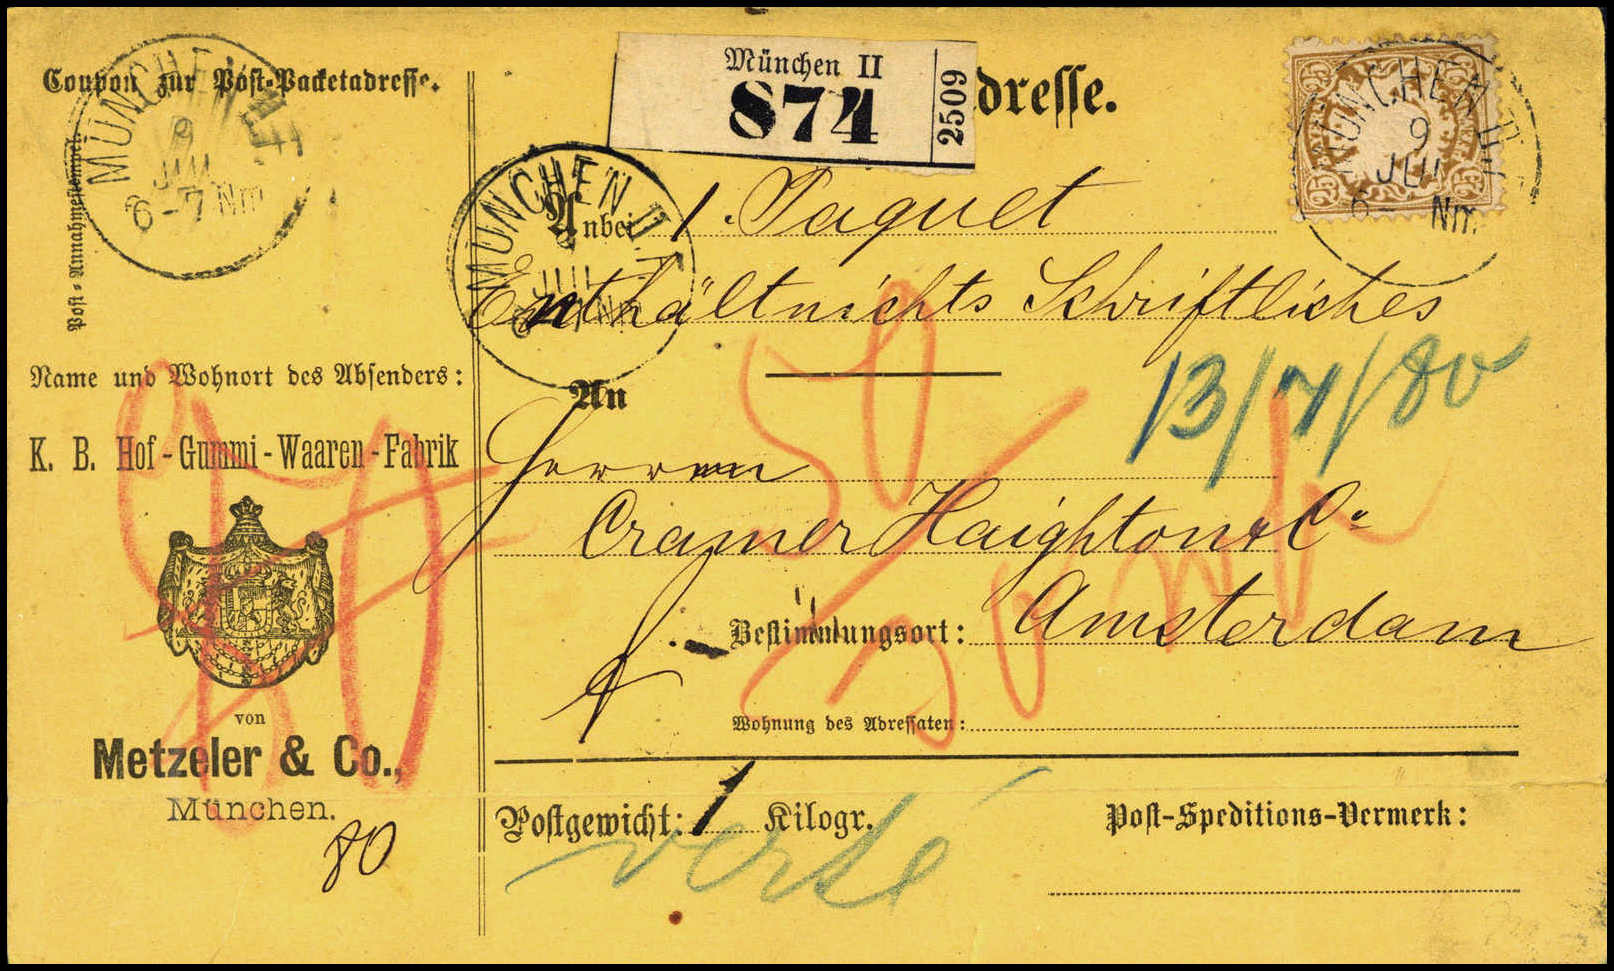 Coupon zur Post-Packetadresse.
MÜNCHEN
9
JUL
6-7 Nm
Post-Annahmestempel.
Name und Wohnort des Absenders:
K. B. Hof-Gummi-Waaren-Fabrik
von
Metzeler & Co.,
München.
80
München II
874
2509
dresse.
25 25
25 25
MÜNCHEN II
9
JUL
6- Nm
MÜNCHEN II
JUL
Nm
Anbei 1 Paquet
Enthält nichts Schriftliches
13/7/80
An
Herren
Cramer Haighton & Co
Bestimmungsort: Amsterdam
Wohnung des Adressaten:
50
Postgewicht: 1 Kilogr.
Post-Speditions-Vermerk: